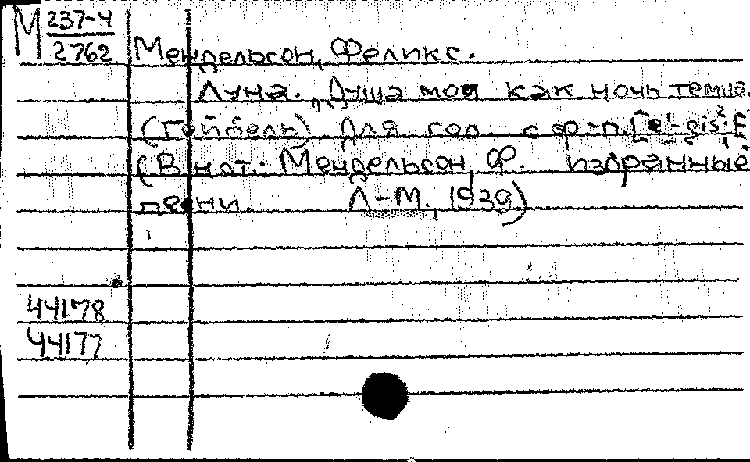 М 237-4
2762
Мендельсон, Феликс.
Луна. "Душа моя как ночь темна.
(Гейбель) Для гол. с ф-п. [e¹-gis²; E
(В нот.: Мендельсон, Ф. Избранные
песни. Л-М., 1939)
44178
44177